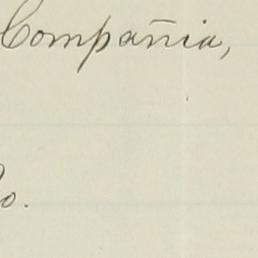 Compañia,
o.